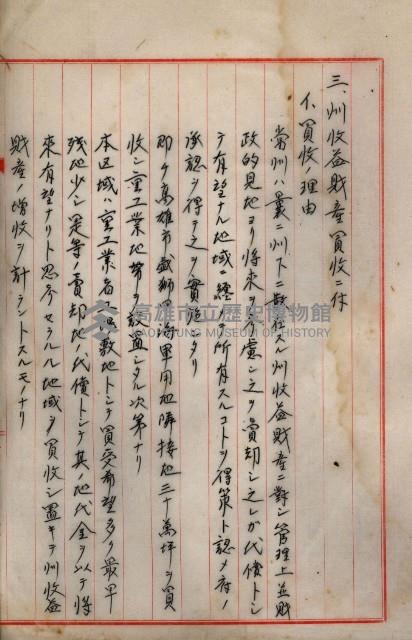 三、州收益財產買收ニ付
イ、買收ノ理由
當州ハ曩ニ州下ニ散在スル州收益財產ニ對シ管理上並財
政的見地ヨリ將來ヲ考慮シ之ヲ賣却シ之レガ代償トシ
テ有望ナル地域ニ經メ所有スルコトヲ得策ト認メ府ノ
承認ヲ得テ之ヲ實施シタリ
即チ高雄市戲獅甲將軍用地隣接地三十萬坪ヲ買
收シ重工業地帶ヲ設置シタル次第ナリ
本區域ハ重工業者ノ敷地トシテ買受希望多ク最早
殘地少シ是等ノ賣却地ノ代償トシテ其ノ地代金ヲ以テ將
來有望ナリト思考セラルル地域ヲ買收シ置キテ州收益
財產ノ增收ヲ計ラントスルモノナリ
高雄市立歷史博物館
KAOHSIUNG MUSEUM OF HISTORY